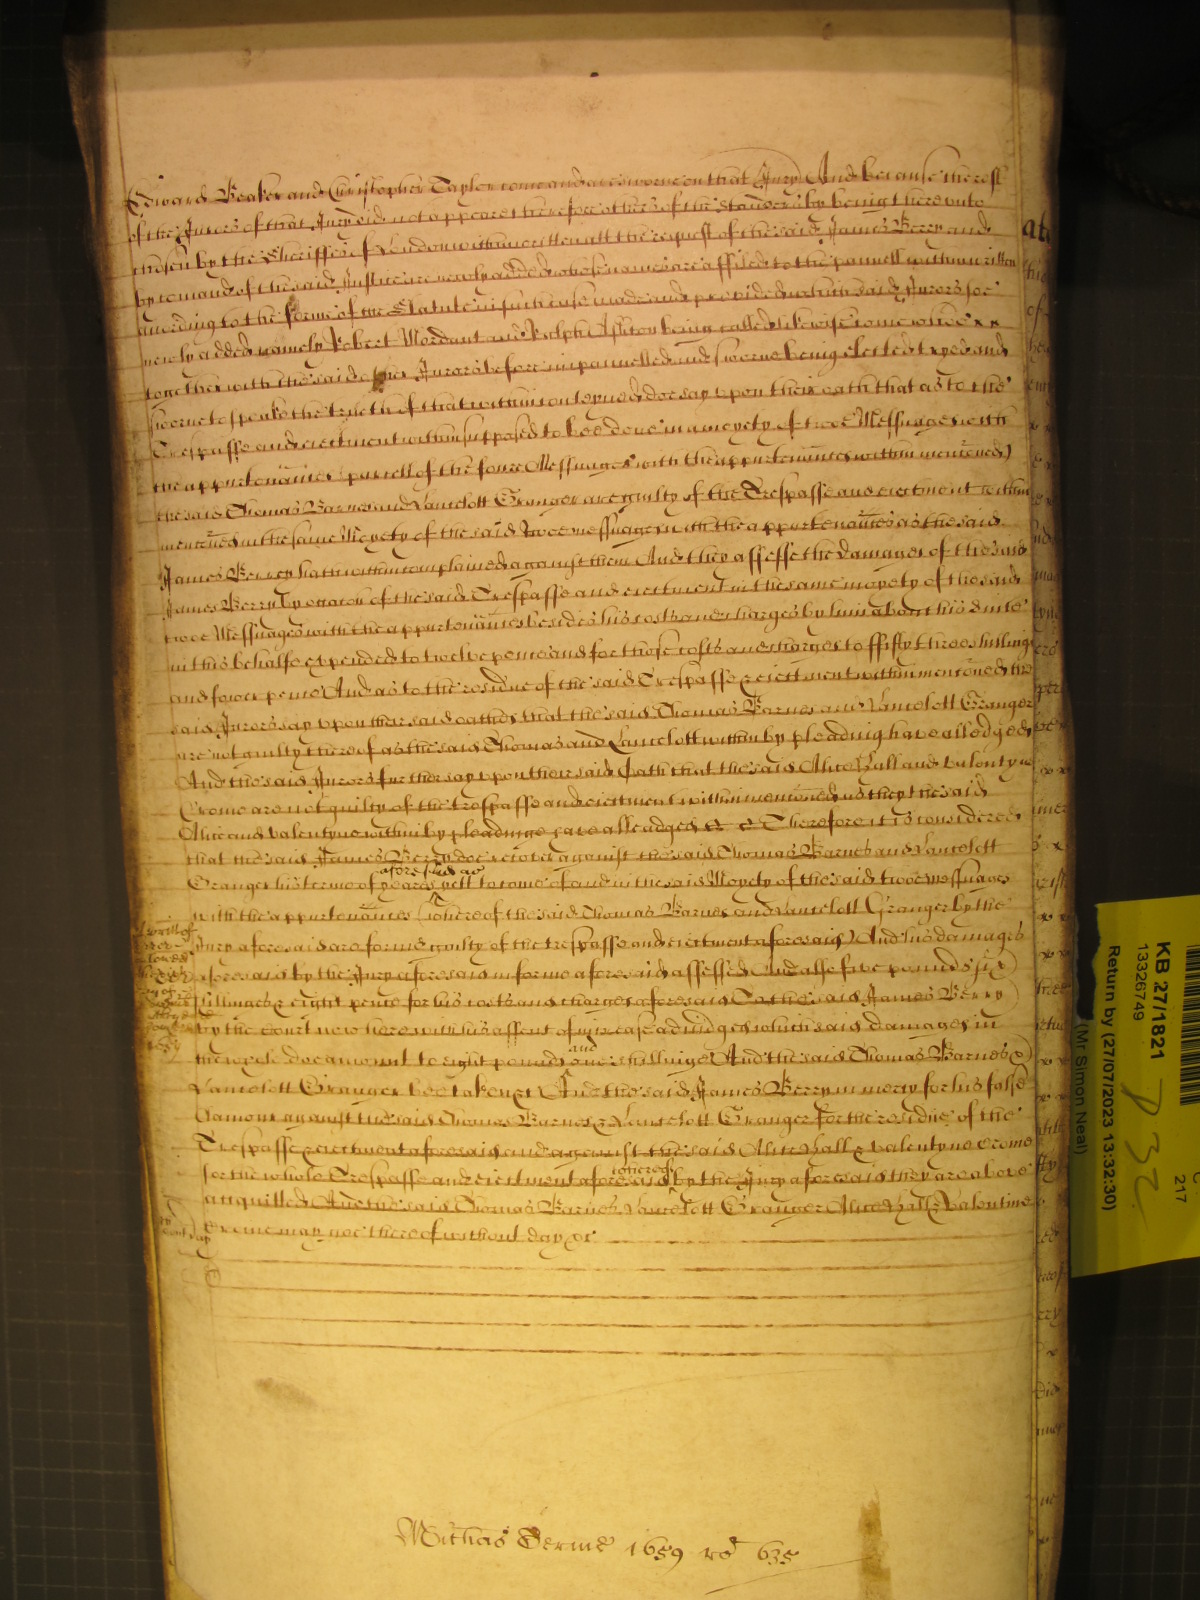 Edward Beaker and Christopher Taylor come and are sworne on that Jury And because the rest
of the Jurors of that Jury did not appeare therefore others of the standers by being hereunto
chosen by the Sheriffes of London within written att the request of the said James Berry and
by comand of the said Justice are newly added whose names are affiled to the pannell within written
according to the forme of the Statute in such case made and provided which said Jurors soe
newly added namely Robert Mordant and Ralph Ashton being called likewise come whoe x x
together with the said other Jurors before impannelled and sworne being elected tryed and
sworne to speake the truth of that within conteyned doe say upon their oath that as to the
Trespasse and eiectment within supposed to bee done in a moyety of twoe Messuages with
the appurtenances parcell of the foure Messuages with the appurtenances within menconed
the said Thomas Barnes and Lancelott Granger are guilty of the Trespasse and eiectment within
menconed in the same Moyety of the said twoe messuages with the appurtenances as the said
James Berry hath within complained against them And they assesse the damages of the said
James Berry by occacon of the said Trespasse and eiectment in the same moyety of the said
twoe Messuages with the appurtenances besides his costs and charges by him about his suite
in this behalfe expended to twelve pence and for those costs and charges to ffifty three shillings
and fower pence And as to the residue of the said Trespasse & eiectment within menconed the
said Jurors say upon their said oathes that the said Thomas Barnes and Lancelott Granger
are not guilty thereof as the said Thomas and Lancelott within by pleading have alledged
And the said Jurors further say upon their said Oath that the said Alice Hall and Valentyne
Crome are not guilty of the trespasse and eiectment within menconed as they the said
Alice and Valentyne within by pleadinge have alleadged &c Therefore it is considered
that the said James Berry doe recover against the said Thomas Barnes and Lancelott
aforesaid
Granger his terme of yeares yett to come of and in the said Moyety of the said twoe messuages
with the appurtenances whereof the said Thomas Barnes and Lancelott Granger by the
Jury aforesaid are found guilty of the trespasse and eiectment aforesaid And his damages
aforesaid by the Jury aforesaid in forme aforesaid assessed And alsoe five pounds six
shillinges & eight pence for his costs and charges aforesaid To the said James Berry
by the Court now here with his assent of increase adiudged which said damages in
and
the whole doe amount to eight pounds one shillinge And the said Thomas Barnes &
Lancelott Granger bee taken &c And the said James Berry in mercy for his false
clamour against the said Thomas Barnes & Lancelott Granger for the residue of the
Trespasse & eiectment aforesaid and against the said Alice Hall & Valentyne Crome
whereof
for the whole Trespasse and eiectment aforesaid by the Jury aforesaid they are above
acquitted And the said Thomas Barnes Lancelott Granger Alice Hall & Valentine
Crome may goe thereof without day &c
Michas Terme 1659 ro 635
KB 27/1821
13326749
Return by (27/07/2023 13:32:30)
(Mr Simon Neal)
217